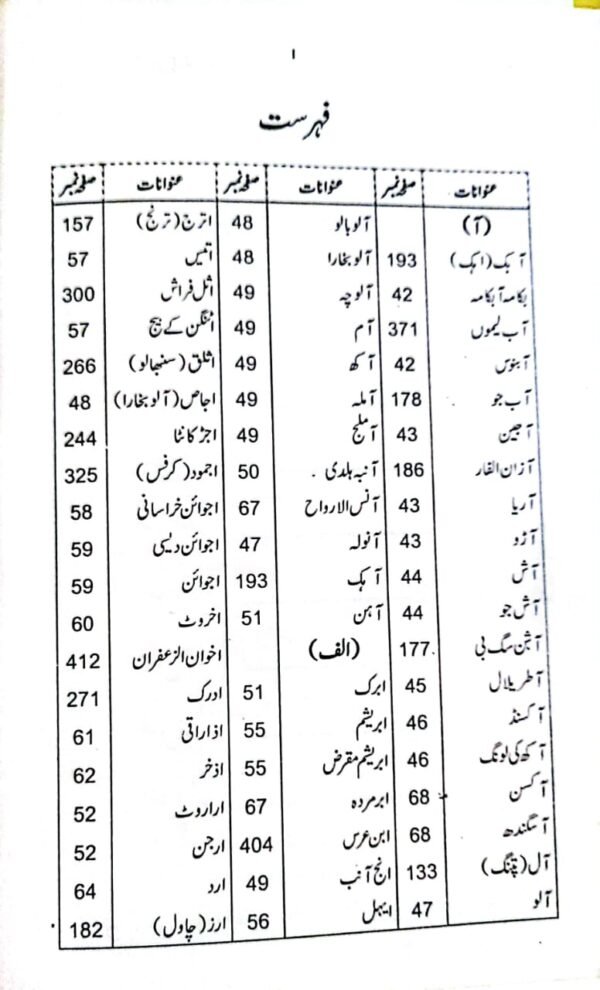 ۱
فہرست
عنوانات صفحہ نمبر عنوانات صفحہ نمبر عنوانات صفحہ نمبر
(آ) آلو بالو 48 اترج (ترنج) 157
آبک (اہک) 193 آلو بخارا 48 اتیس 57
بکامہ آبکامہ 42 آلوچہ 49 اثل فراش 300
آب لیموں 371 آم 49 اٹنگن کے بیج 57
آبنوس 42 آکھ 49 اثلق (سنبھالو) 266
آب جو 178 آملہ 49 اجاص (آلو بخارا) 48
آجین 43 آملج 49 اجڑ کانٹا 244
آزان الفار 186 آنبہ ہلدی 50 اجمود (کرفس) 325
آریا 43 آنس الارواح 67 اجوائن خراسانی 58
آڑو 43 آنولہ 47 اجوائن دیسی 59
آش 44 آہک 193 اجوائن 59
آش جو 44 آہن 51 اخروٹ 60
سگ بی 177 (الف) اخوان الزعفران 412
آطریلال 45 ابرک 51 ادرک 271
آکسنڈ 46 ابریشم 55 اذاراقی 61
آکھ کی لونگ 46 ابریشم مقرض 55 اذخر 62
آکسن 68 ابرمردہ 67 اراروٹ 52
آسگندھ 68 ابن عرس 404 ارجن 52
آل (پتنگ) 133 انج آنب 49 ارد 64
آلو 47 ابہل 56 ارز (چاول) 182